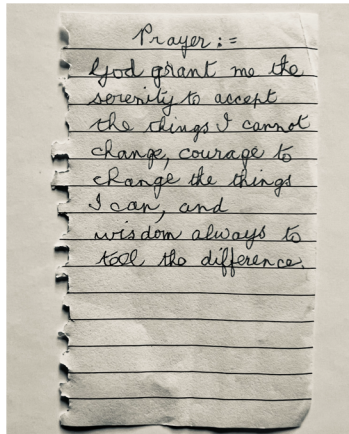 Prayer :=
God grant me the
serenity to accept
the things I cannot
change, courage to
change the things
I can, and
wisdom always to
tell the difference.